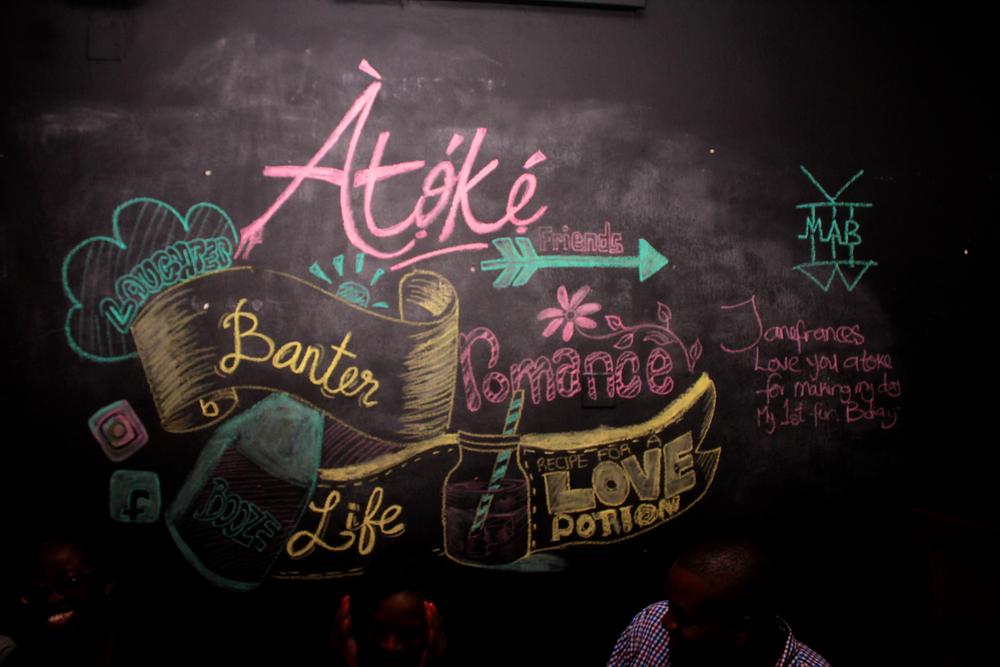 Àtọ́kẹ́
Friends
LAUGHTER
Banter
b
Romance
BOOZE
Life
RECIPE FOR A
LOVE
POTION
f
MAB
Janefrances
Love you atoke
for making my day
My 1st fur. Bday